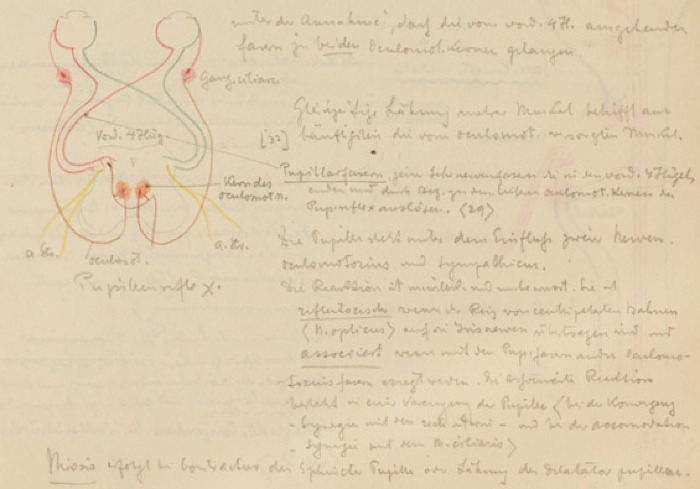 unter der Annahme, dass die vom vord. 4 H. ausgehenden
fasern zu beiden Oculomot. Kernen gelangen
Gang. ciliare
Gleichzeitige Lähmung mehrer Muskel betrifft am
häufigsten die vom oculomot. versorgten Muskel.
vord. 4 Hüg.
[32]
Pupillarfasern, sehnervenfasern die in den vord. 4 Hügeln
enden und durch zu den oculomot. Kernen den
Pup. reflex auslösen. (29)
Kern des
oculomot. n.
a. Str.
oculomot.
a. Str.
Pupillenreflex.
Die Pupille steht unter dem Einfluss zweier Nerven.
oculomotorius und Sympathicus.
Die Reaktion ist unwillk. und unbewusst. Sie ist
reflektorisch wenn der Reiz von centripetalen Bahnen
(N. opticus) auf die Irisnerven übertragen wird und
associiert wenn mit den Pup. fasern andre Oculomo-
toriusfasern erregt werden. Die associierte Reaktion
besteht in einer Verengung der Pupille (bei der Konvergenz
- Synergie mit dem rect. interni - und bei der accomodation
- Synergie mit dem M. ciliaris)
Miosis erfolgt bei Contractur des Sphincter Pupillae oder Lähmung des Dilatator pupillae.